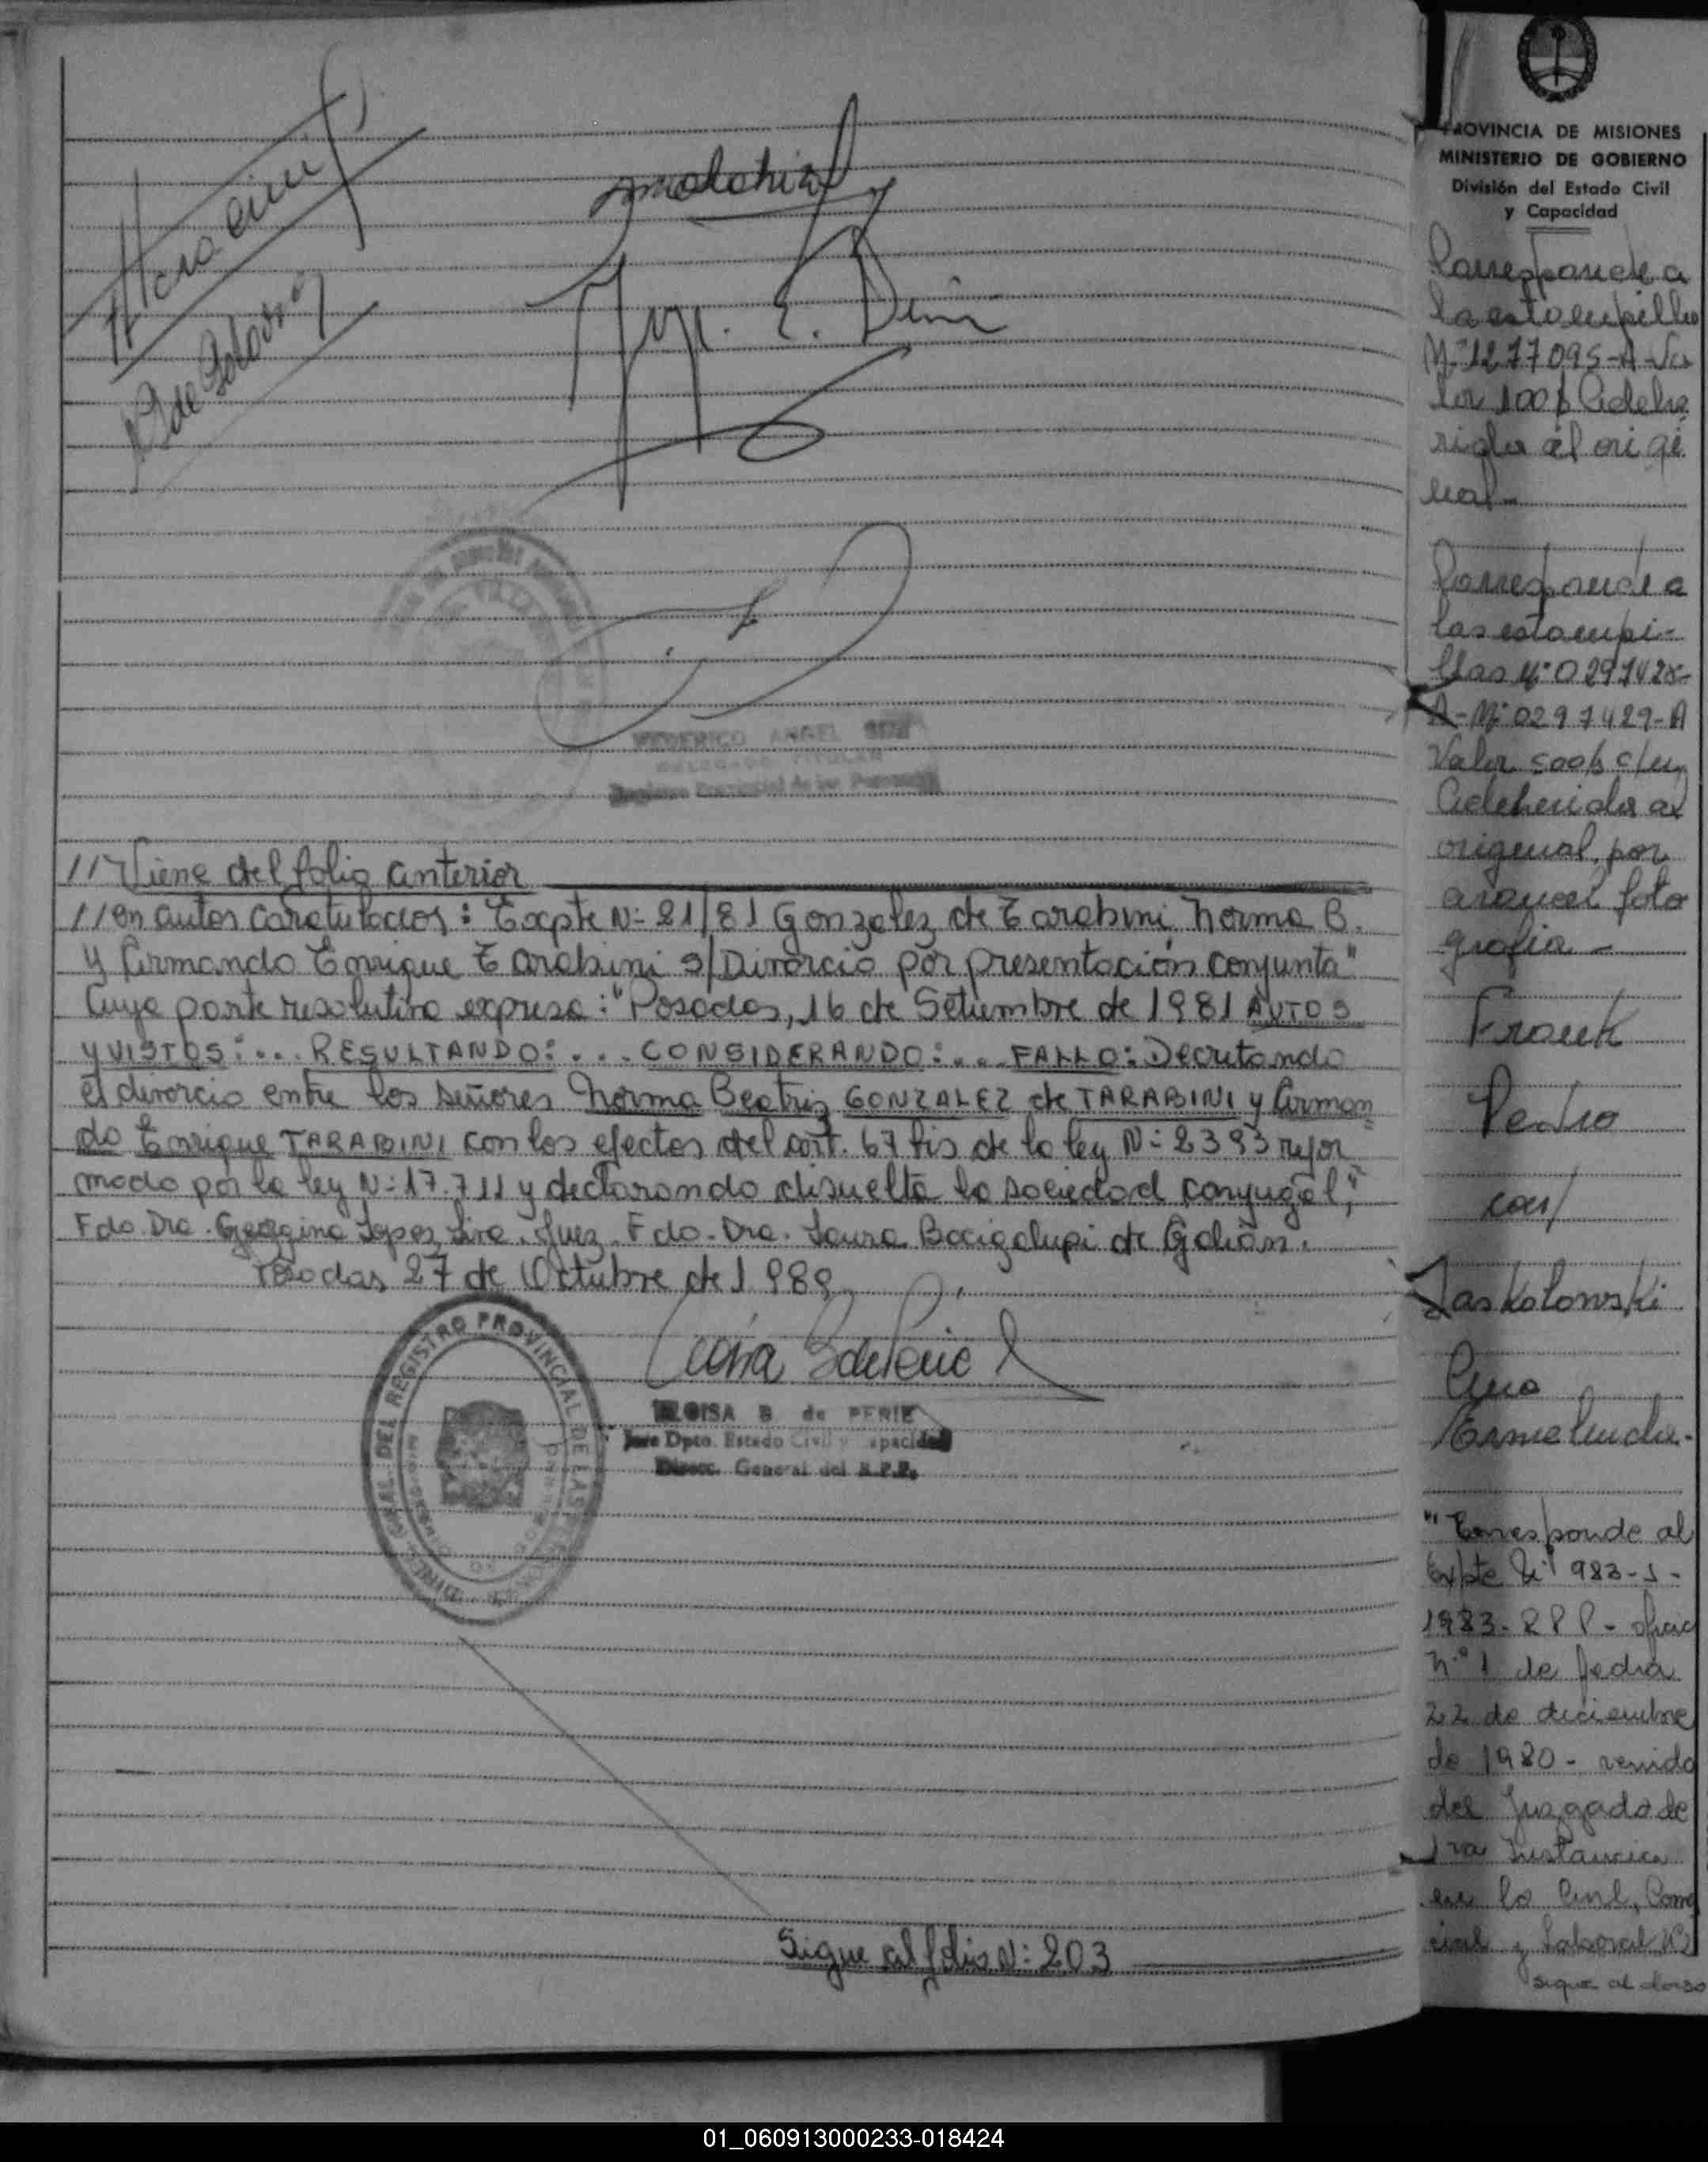 //Viene del folio anterior
//en autos caratulados: Expte N: 21/81 Gonzalez de Tarabini, Norma B.
y Armando Enrique Tarabini s/Divorcio por presentación conjunta"
Cuya parte resolutiva expresa: "Posadas, 16 de Setiembre de 1981 AUTOS
Y VISTOS:... RESULTANDO:... CONSIDERANDO:... FALLO: Decretando
el divorcio entre los señores Norma Beatriz GONZALEZ de TARABINI y Arman
do Enrique TARABINI con los efectos del art. 67 bis de la ley N: 2393 refor
mada por la ley N: 17.711 y declarando disuelta la sociedad conyugal,"
Fdo. Dra. Georgina Lopez Lira. Juez. Fdo. Dra. Laura Bacigalupi de Galián.
Posadas 27 de Octubre de 1989
FEDERICO ANGEL
REGISTRO PROVINCIAL DE LAS
ELOISA B de PERIE
Jefe Dpto. Estado Civil y Capacidad
Direcc. General del R.P.P.
Sigue al folio N: 203
PROVINCIA DE MISIONES
MINISTERIO DE GOBIERNO
División del Estado Civil
y Capacidad
Corresponde a
la estampilla
Nº 1277095-A-Va
lor 100$ Adehe
rida al origi
nal-
Corresponde a
las estampi-
llas Nº 0297428-
A-Nº 0297429-A
Valor 500$ c/u
Adeherida al
original, por
arancel foto
grafia-
Frank
Pedro
con/
Jaskolowski
Ana
Ermelinda.
"Corresponde al
Expte Nº 983-J-
1983-RPP-oficio
Nº 1 de fecha
22 de diciembre
de 1980- venido
del Juzgado de
1ra Instancia
en lo Civil, Comer
cial y Laboral Nº2
sigue al dorso
01_060913000233-018424